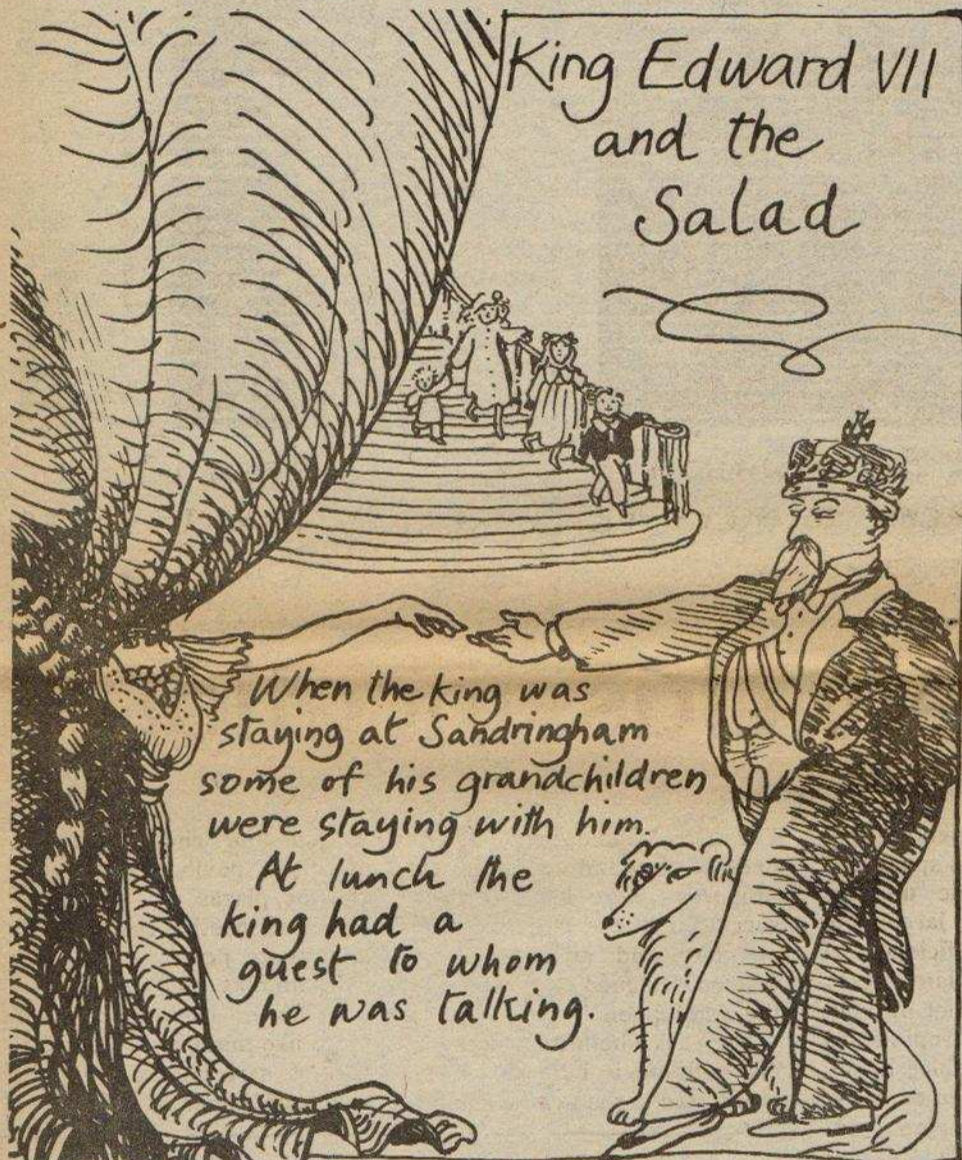 King Edward VII
and the
Salad
When the king was
staying at Sandringham
some of his grandchildren
were staying with him.
At lunch the
king had a
guest to whom
he was talking.